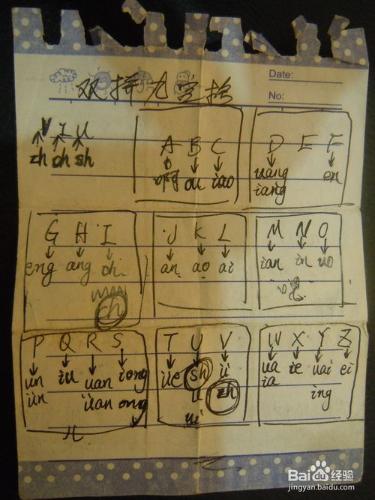 Date:
双拼九宫格
No:
V I U
zh ch sh
A B C
啊 ou iao
D E F
uang en
iang
G H I
eng ang ch
J K L
an ao ai
M N O
ian in uo
P Q R S
un iu uan iong
ün üan ong
T U V
üe sh ü
u zh
ui
W X Y Z
ua ie uai ei
ia ing
Baidu经验
jingyan.baidu.com